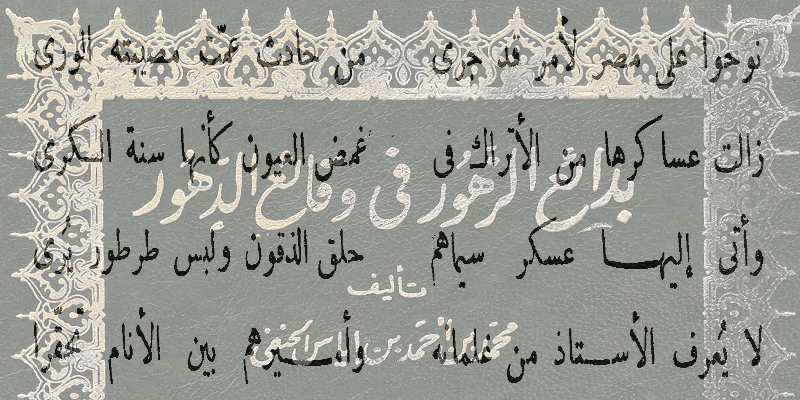 نوحوا على مصر لأمر قد جرى من حادث عمّت مصيبته الورى
زالت عساكرها من الأتراك فى غمض العيون كأنها سنة الكرى
بدائع الزهور في وقائع الدهور
وأتى إليها عسكر سيماهم حلق الذقون ولبس طرطور يُرى
تأليف
لا يُعرف الأستاذ من غلمانه وأميرهم بين الأنام تحقّرا
محمد بن أحمد بن إياس الحنفي